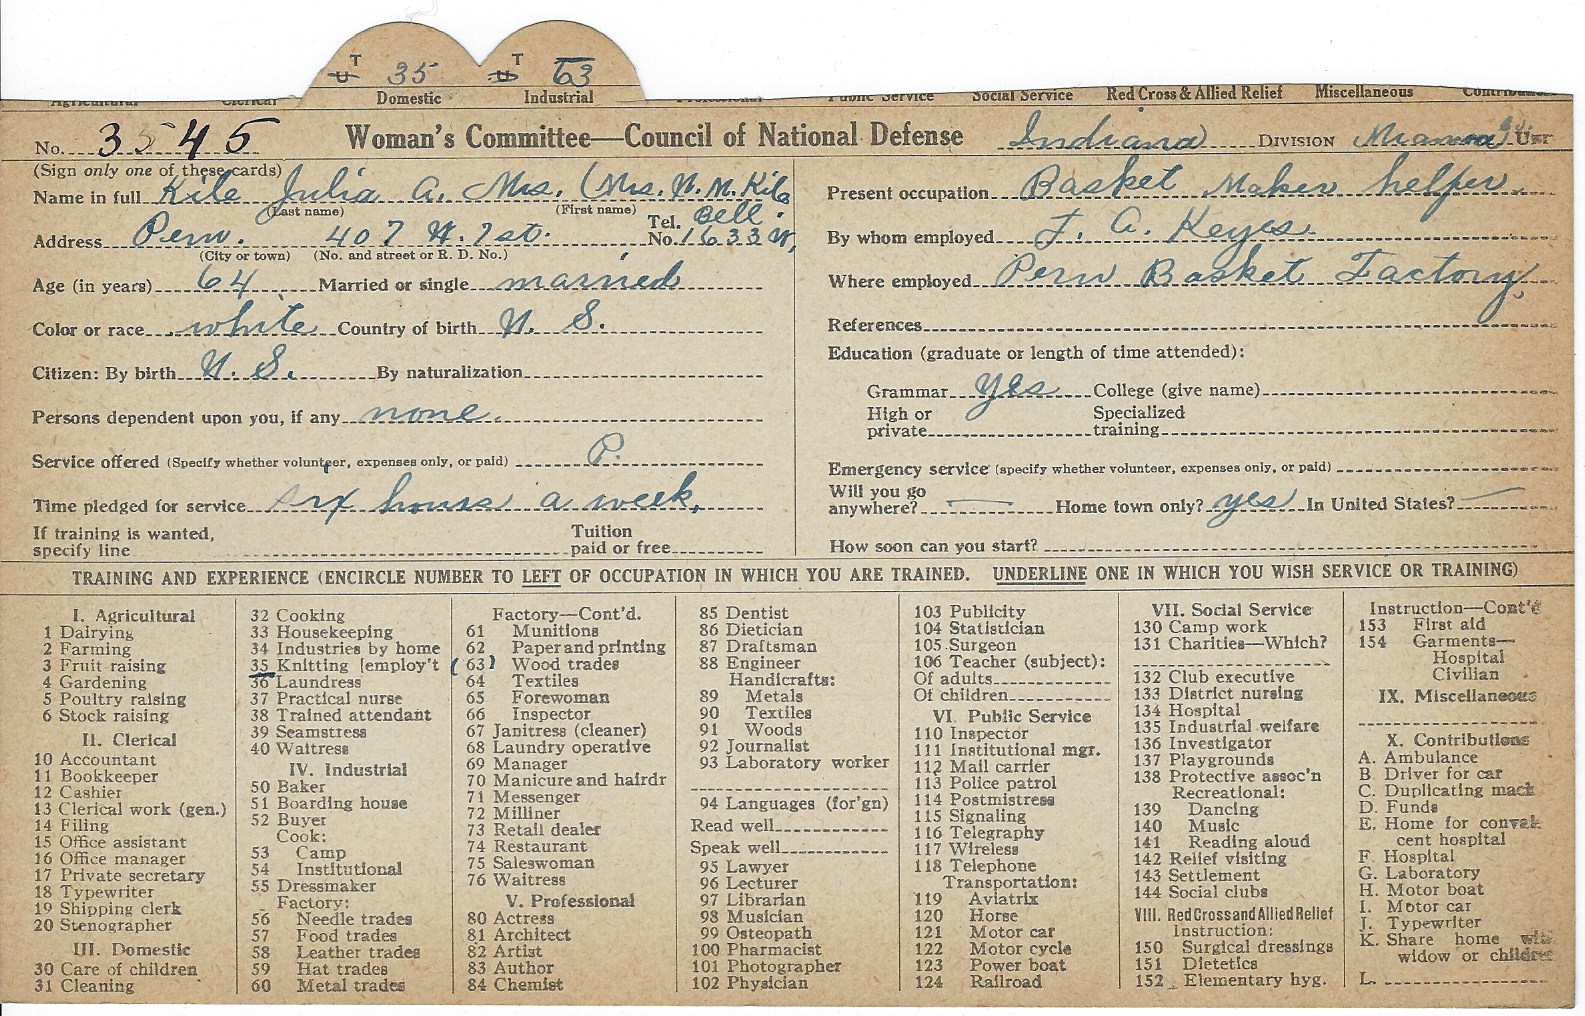 U T 35 U T 63
Agricultural Clerical Domestic Industrial Professional Public Service Social Service Red Cross & Allied Relief Miscellaneous
No. 3545 Woman's Committee—Council of National Defense Indiana DIVISION
(Sign only one of these cards)
Name in full Kile Julia A. Mrs. (Mrs. W. M. Kile
(Last name) (First name)
Address Peru. 407 W. 1st. Tel. No. Bell. 1633 W,
(City or town) (No. and street or R. D. No.)
Age (in years) 64 Married or single married
Color or race white Country of birth U. S.
Citizen: By birth U. S. By naturalization
Persons dependent upon you, if any none.
Service offered (Specify whether volunteer, expenses only, or paid) P.
Time pledged for service six hours a week.
If training is wanted, specify line Tuition paid or free
Present occupation Basket Maker helper.
By whom employed J. A. Keyes.
Where employed Peru Basket Factory.
References
Education (graduate or length of time attended):
Grammar yes College (give name)
High or private Specialized training
Emergency service (specify whether volunteer, expenses only, or paid)
Will you go anywhere? — Home town only? yes In United States? —
How soon can you start?
TRAINING AND EXPERIENCE (ENCIRCLE NUMBER TO LEFT OF OCCUPATION IN WHICH YOU ARE TRAINED. UNDERLINE ONE IN WHICH YOU WISH SERVICE OR TRAINING)
I. Agricultural
1 Dairying
2 Farming
3 Fruit raising
4 Gardening
5 Poultry raising
6 Stock raising
II. Clerical
10 Accountant
11 Bookkeeper
12 Cashier
13 Clerical work (gen.)
14 Filing
15 Office assistant
16 Office manager
17 Private secretary
18 Typewriter
19 Shipping clerk
20 Stenographer
III. Domestic
30 Care of children
31 Cleaning
32 Cooking
33 Housekeeping
34 Industries by home
35 Knitting [employ't
36 Laundress
37 Practical nurse
38 Trained attendant
39 Seamstress
40 Waitress
IV. Industrial
50 Baker
51 Boarding house
52 Buyer
Cook:
53 Camp
54 Institutional
55 Dressmaker
Factory:
56 Needle trades
57 Food trades
58 Leather trades
59 Hat trades
60 Metal trades
Factory—Cont'd.
61 Munitions
62 Paper and printing
(63) Wood trades
64 Textiles
65 Forewoman
66 Inspector
67 Janitress (cleaner)
68 Laundry operative
69 Manager
70 Manicure and hairdr
71 Messenger
72 Milliner
73 Retail dealer
74 Restaurant
75 Saleswoman
76 Waitress
V. Professional
80 Actress
81 Architect
82 Artist
83 Author
84 Chemist
85 Dentist
86 Dietician
87 Draftsman
88 Engineer
Handicrafts:
89 Metals
90 Textiles
91 Woods
92 Journalist
93 Laboratory worker
94 Languages (for'gn)
Read well
Speak well
95 Lawyer
96 Lecturer
97 Librarian
98 Musician
99 Osteopath
100 Pharmacist
101 Photographer
102 Physician
103 Publicity
104 Statistician
105 Surgeon
106 Teacher (subject):
Of adults
Of children
VI. Public Service
110 Inspector
111 Institutional mgr.
112 Mail carrier
113 Police patrol
114 Postmistress
115 Signaling
116 Telegraphy
117 Wireless
118 Telephone
Transportation:
119 Aviatrix
120 Horse
121 Motor car
122 Motor cycle
123 Power boat
124 Railroad
VII. Social Service
130 Camp work
131 Charities—Which?
132 Club executive
133 District nursing
134 Hospital
135 Industrial welfare
136 Investigator
137 Playgrounds
138 Protective assoc'n
Recreational:
139 Dancing
140 Music
141 Reading aloud
142 Relief visiting
143 Settlement
144 Social clubs
VIII. Red Cross and Allied Relief
Instruction:
150 Surgical dressings
151 Dietetics
152 Elementary hyg.
Instruction—Cont'd
153 First aid
154 Garments—
Hospital
Civilian
IX. Miscellaneous
X. Contributions
A. Ambulance
B. Driver for car
C. Duplicating mach
D. Funds
E. Home for conval
cent hospital
F. Hospital
G. Laboratory
H. Motor boat
I. Motor car
J. Typewriter
K. Share home with
widow or children
L.